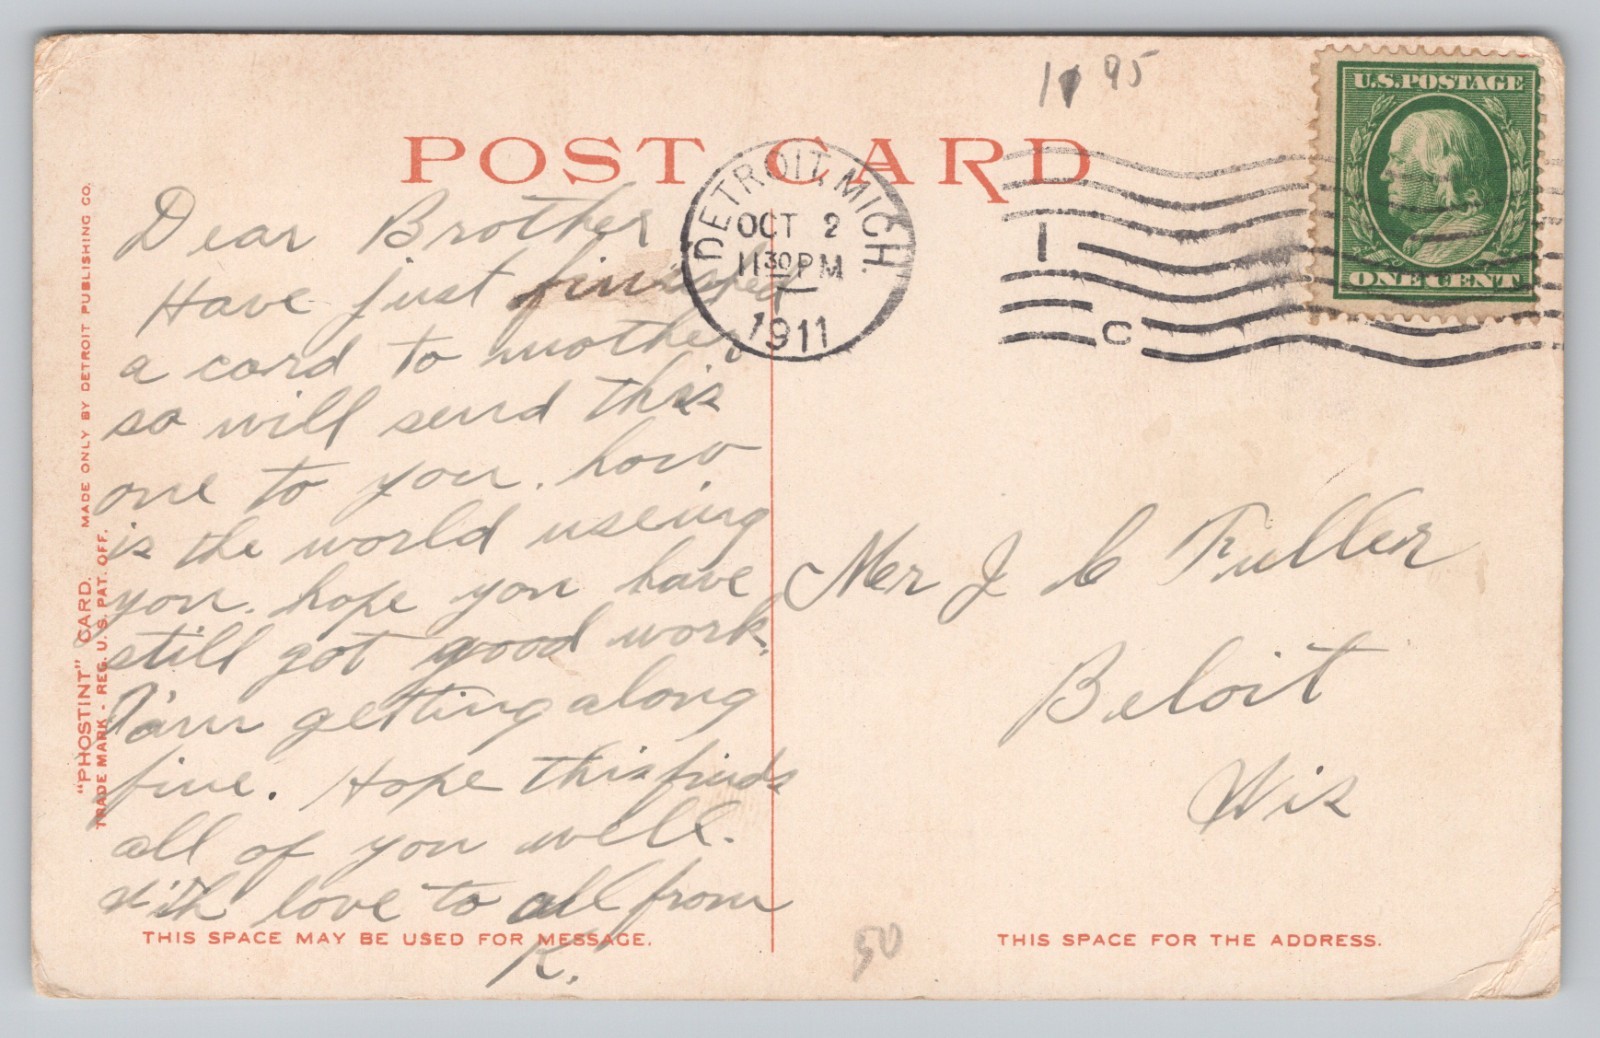 1 95
U.S.POSTAGE
ONE CENT
POST CARD
DETROIT, MICH.
OCT 2
11 30 PM
1911
1
C
Dear Brother
Have just finished
a card to mother
so will send this
one to you. how
is the world useing
you. hope you have
still got good work.
I'am getting along
fine. Hope this finds
all of you well.
with love to all from
K.
Mer J C Fuller
Beloit
Wis
"PHOSTINT" CARD. MADE ONLY BY DETROIT PUBLISHING CO.
TRADE MARK - REG. U.S. PAT. OFF.
THIS SPACE MAY BE USED FOR MESSAGE.
50
THIS SPACE FOR THE ADDRESS.